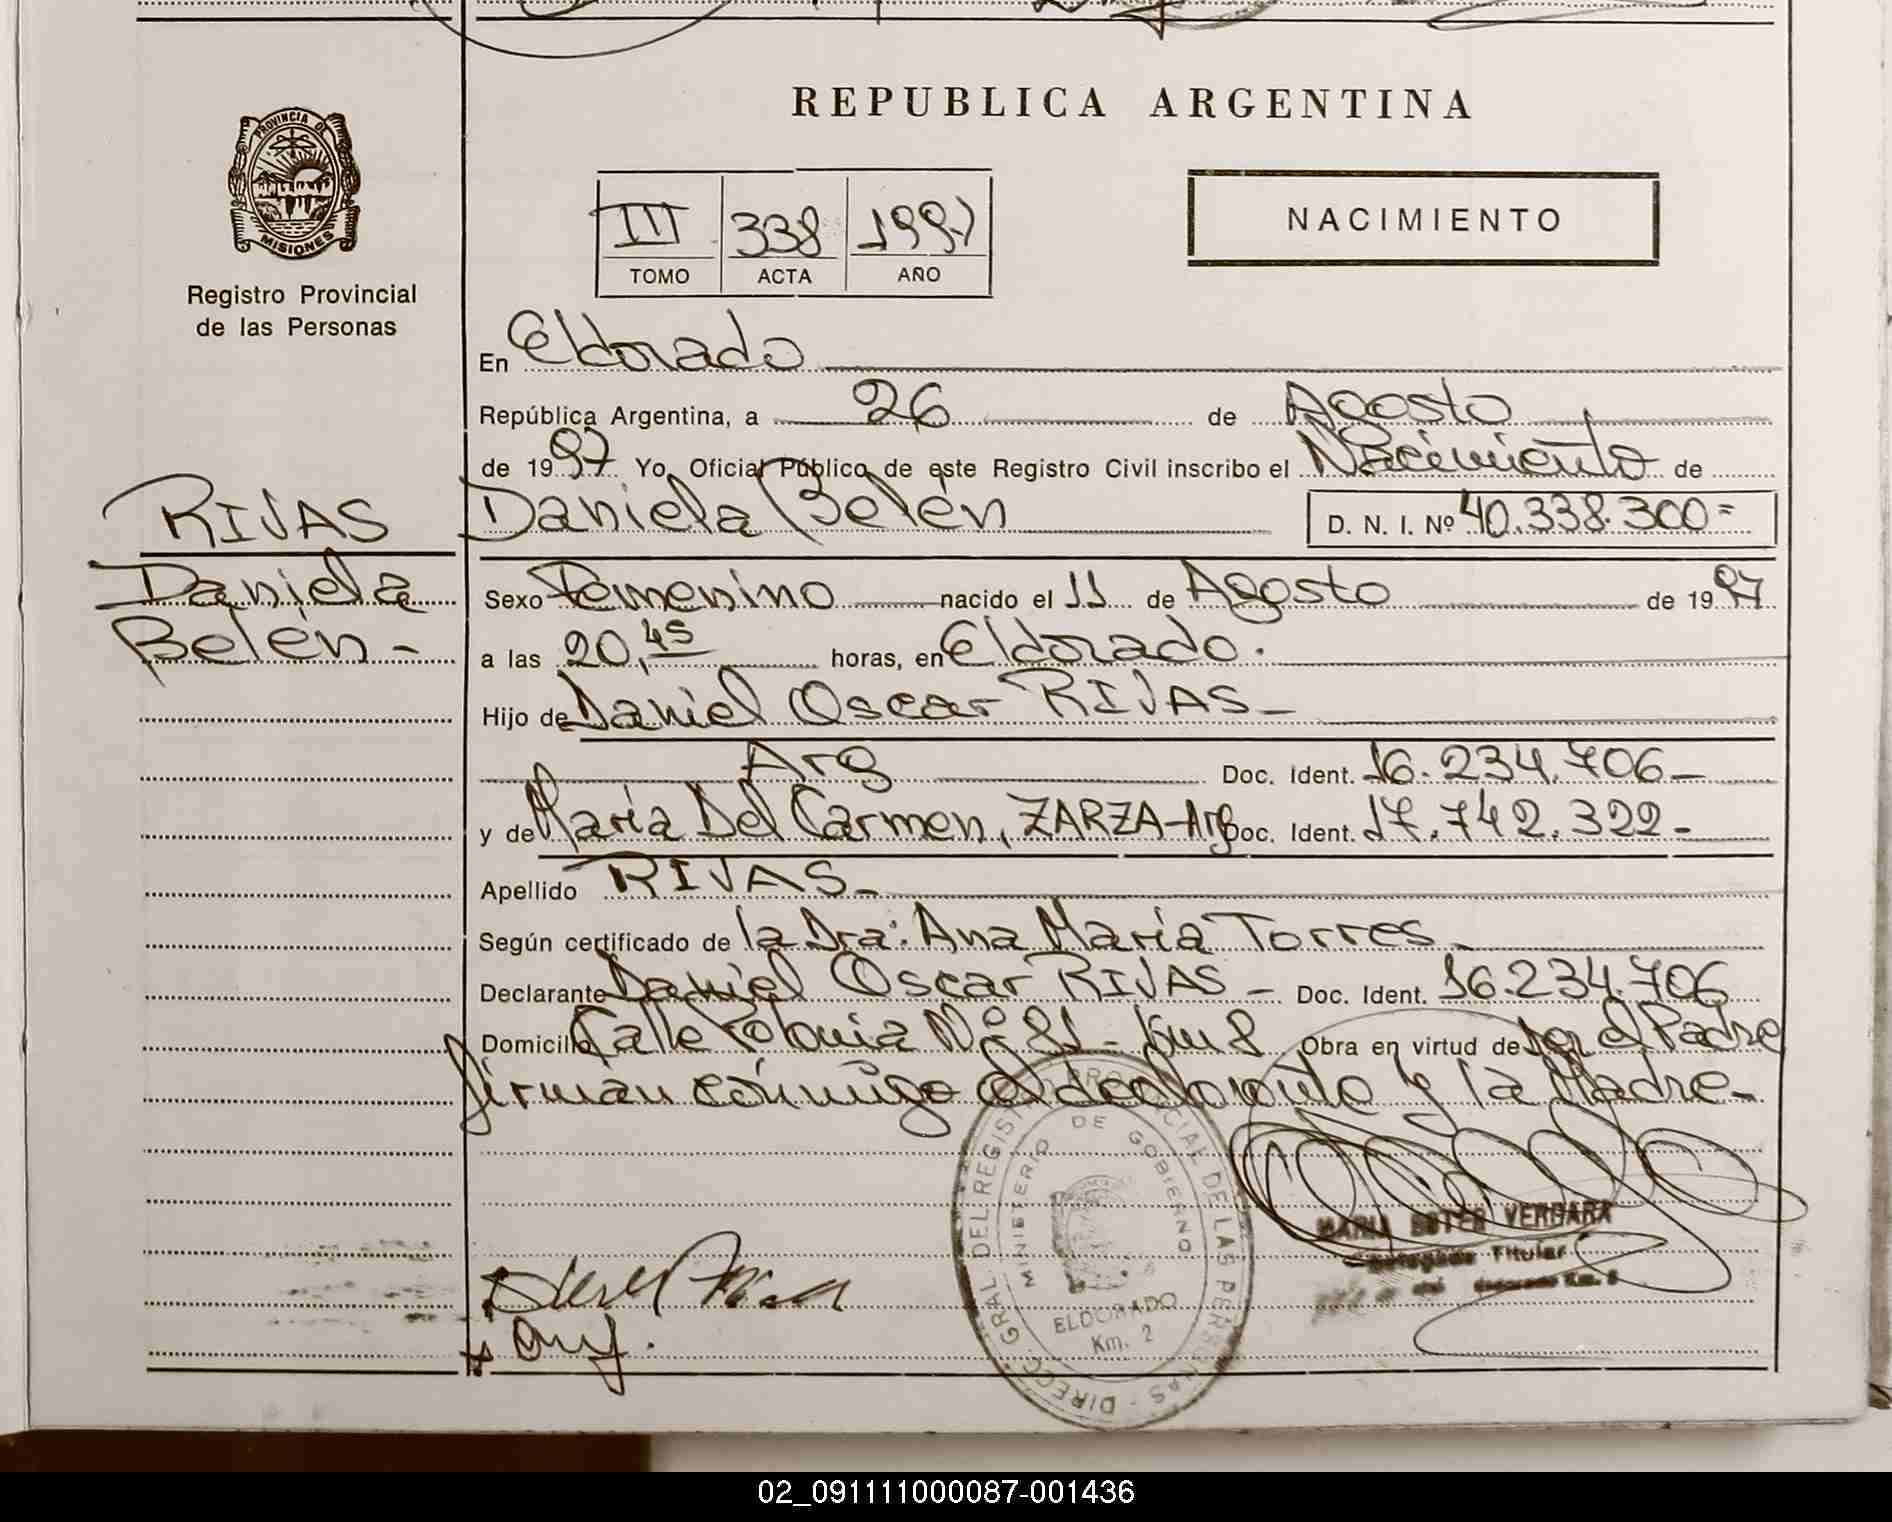 REPUBLICA ARGENTINA
PROVINCIA DE
MISIONES
Registro Provincial
de las Personas
III 338 1997
TOMO ACTA AÑO
NACIMIENTO
En Eldorado
República Argentina, a 26 de Agosto
de 1997 Yo, Oficial Público de este Registro Civil inscribo el Nacimiento de
RIVAS
Daniela Belén D. N. I. Nº 40.338.300=
Daniela
Belén -
Sexo Femenino nacido el 11 de Agosto de 1997
a las 20,45 horas, en Eldorado.
Hijo de Daniel Oscar RIVAS -
Arg Doc. Ident. 16.234.706 -
y de María Del Carmen, ZARZA - Arg Doc. Ident. 17.742.322 -
Apellido RIVAS -
Según certificado de la Dra: Ana María Torres -
Declarante Daniel Oscar RIVAS - Doc. Ident. 16.234.706
Domicilio Calle Polonia Nº 81 - Km 8 Obra en virtud de ser el Padre
firman conmigo el declarante y la Madre -
DIREC. GRAL. DEL REGISTRO PROVINCIAL DE LAS PERSONAS
MINISTERIO DE GOBIERNO
ELDORADO
Km. 2
MARIA ESTER VERGARA
Delegada Titular
02_091111000087-001436